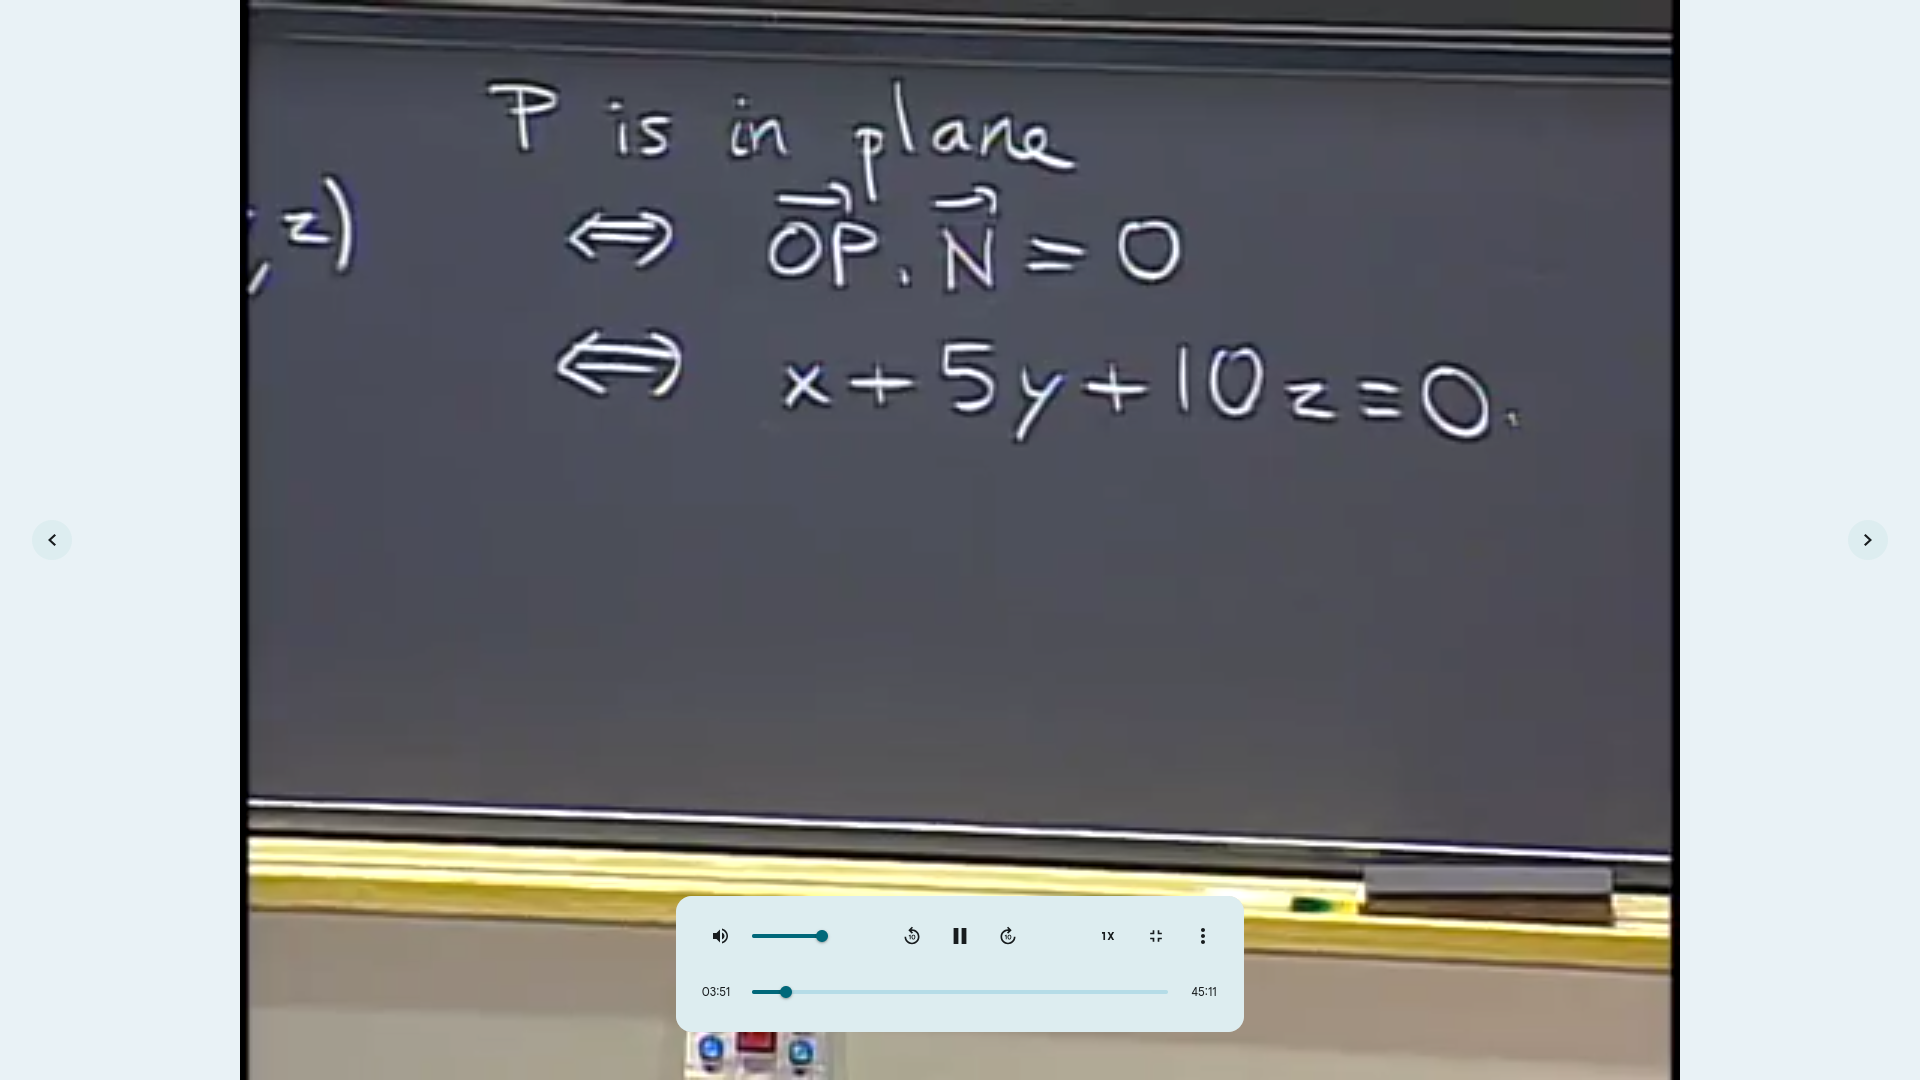 P is in plane
, z)
⇔ OP⃗ . N⃗ = 0
⇔ x + 5y + 10z = 0.
10
10
1X
03:51
45:11